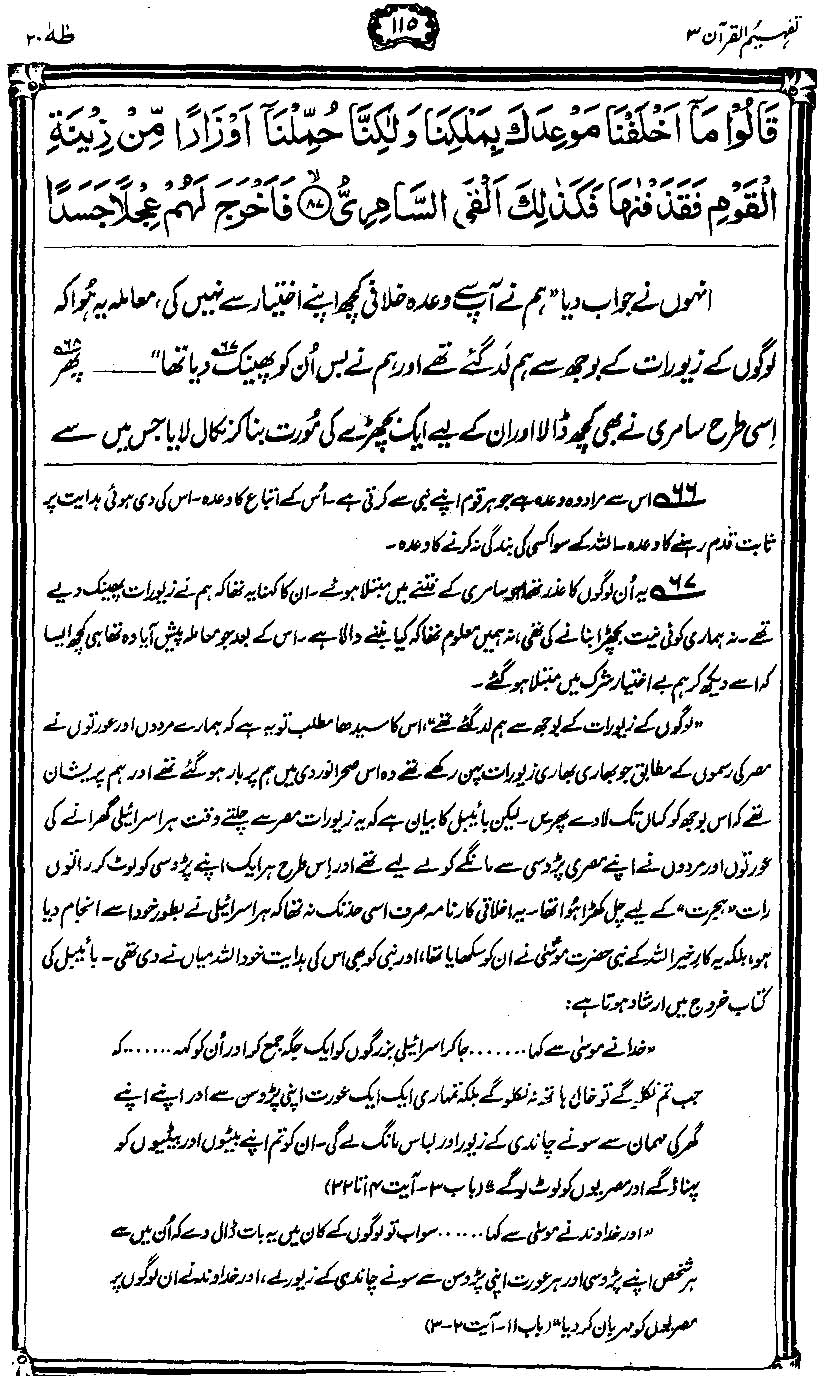 تفہیم القرآن ۳
۱۱۵
طٰہٰ ۲۰
قَالُوْا مَآ اَخْلَفْنَا مَوْعِدَكَ بِمَلْكِنَا وَلٰكِنَّا حُمِّلْنَآ اَوْزَارًا مِّنْ زِيْنَةِ
الْقَوْمِ فَقَذَفْنٰهَا فَكَذٰلِكَ اَلْقَى السَّامِرِىُّ ۙ﴿۸۷﴾ فَاَخْرَجَ لَهُمْ عِجْلًا جَسَدًا
انہوں نے جواب دیا ”ہم نے آپ سے وعدہ خلافی کچھ اپنے اختیار سے نہیں کی، معاملہ یہ ہُوا کہ
لوگوں کے زیورات کے بوجھ سے ہم لَد گئے تھے اور ہم نے بس اُن کو پھینک دیا تھا“ ۶۷ ــــــــ پھر ۶۸
اِسی طرح سامری نے بھی کچھ ڈالا اور ان کے لیے ایک بچھڑے کی مُورت بنا کر نکال لایا جس میں سے
۶۶ اس سے مراد وہ وعدہ ہے جو ہر قوم اپنے نبی سے کرتی ہے۔ اُس کے اتباع کا وعدہ۔ اس کی دی ہوئی ہدایت پر
ثابت قدم رہنے کا وعدہ۔ اللہ کے سوا کسی کی بندگی نہ کرنے کا وعدہ۔
۶۷ یہ اُن لوگوں کا عذر تھا جو سامری کے فتنے میں مبتلا ہوئے۔ ان کا کہنا یہ تھا کہ ہم نے زیورات پھینک دیے
تھے۔ نہ ہماری کوئی نیت بچھڑا بنانے کی تھی، نہ ہمیں معلوم تھا کہ کیا بننے والا ہے۔ اس کے بعد جو معاملہ پیش آیا وہ تھا ہی کچھ ایسا
کہ اسے دیکھ کر ہم بے اختیار شرک میں مبتلا ہو گئے۔
”لوگوں کے زیورات کے بوجھ سے ہم لد گئے تھے“، اس کا سیدھا مطلب تو یہ ہے کہ ہمارے مردوں اور عورتوں نے
مصر کی رسموں کے مطابق جو بھاری بھاری زیورات پہن رکھے تھے وہ اس صحرا نوردی میں ہم پر بار ہو گئے تھے اور ہم پریشان
تھے کہ اس بوجھ کو کہاں تک لادے پھریں۔ لیکن بائیبل کا بیان ہے کہ یہ زیورات مصر سے چلتے وقت ہر اسرائیلی گھرانے کی
عورتوں اور مردوں نے اپنے مصری پڑوسی سے مانگے کو لے لیے تھے اور اِس طرح ہر ایک اپنے پڑوسی کو لوٹ کر راتوں
رات ”ہجرت“ کے لیے چل کھڑا ہوا تھا۔ یہ اخلاقی کارنامہ صرف اسی حد تک نہ تھا کہ ہر اسرائیلی نے بطور خود اسے انجام دیا
ہو، بلکہ یہ کارِ خیر اللہ کے نبی حضرت موسٰیؑ نے ان کو سکھایا تھا، اور نبی کو بھی اس کی ہدایت خود اللہ میاں نے دی تھی۔ بائیبل کی
کتاب خروج میں ارشاد ہوتا ہے:
”خدا نے موسٰی سے کہا ........ جا کر اسرائیلی بزرگوں کو ایک جگہ جمع کر اور اُن کو کہہ ....... کہ
جب تم نکلو گے تو خالی ہاتھ نہ نکلو گے بلکہ تمہاری ایک ایک عورت اپنی پڑوسن سے اور اپنے اپنے
گھر کی مہمان سے سونے چاندی کے زیور اور لباس مانگ لے گی۔ ان کو تم اپنے بیٹوں اور بیٹیوں کو
پہناؤ گے اور مصریوں کو لوٹ لو گے“ (باب ۳۔ آیت ۱۴ تا ۲۲)
”اور خداوند نے موسٰی سے کہا ...... سو اب تو لوگوں کے کان میں یہ بات ڈال دے کہ اُن میں سے
ہر شخص اپنے پڑوسی اور ہر عورت اپنی پڑوسن سے سونے چاندی کے زیور لے، اور خداوند نے ان لوگوں پر
مصریوں کو مہربان کر دیا“ (باب ۱۱۔ آیت ۲-۳)